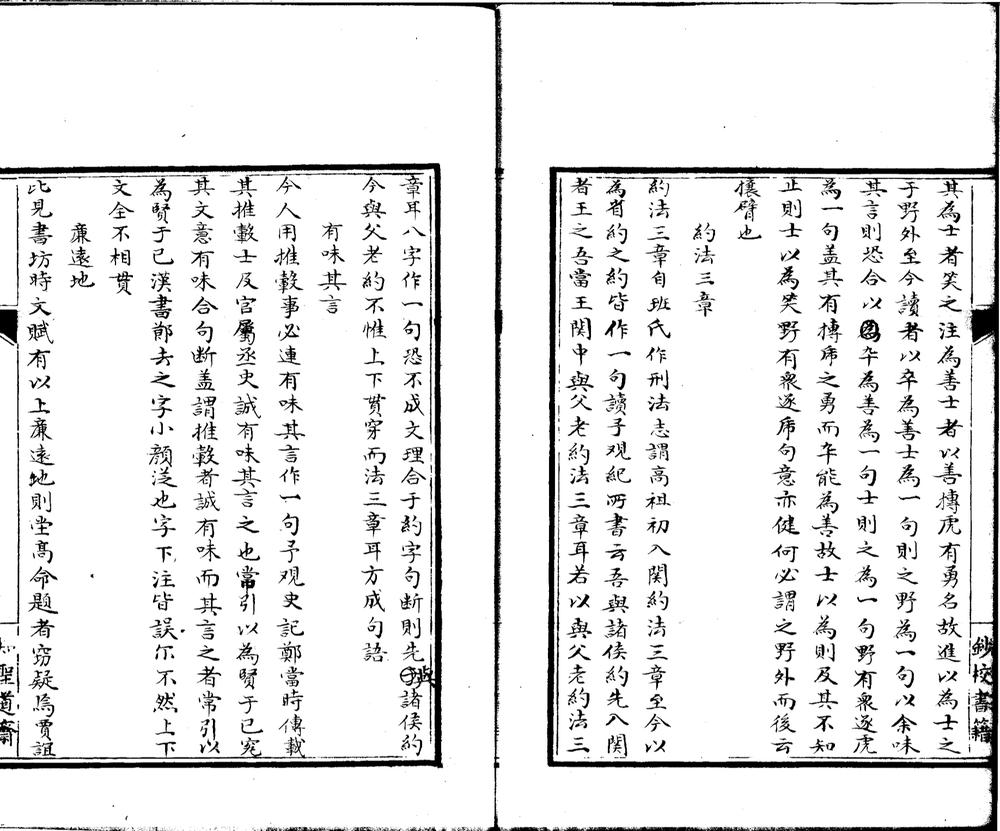 其為士者笑之注為善士者以善搏虎有勇名故進以為士之
于野外至今讀者以卒為善士為一句則之野為一句以余味
其言則恐合以卒為善為一句士則之為一句野有衆逐虎
為一句盖其有搏虎之勇而卒能為善故士以為則及其不知
止則士以為笑野有衆逐虎句意亦健何必謂之野外而後云
攘臂也
約法三章
約法三章自班氏作刑法志謂高祖初入関約法三章至今以
為省約之約皆作一句讀予观紀所書云吾與諸侯約先入関
者王之吾當王関中與父老約法三章耳若以與父老約法三
鈔校書籍
章耳八字作一句恐不成文理合于約字句断則先與諸侯約
今與父老約不惟上下贯穿而法三章耳方成句語
有味其言
今人用推轂事必連有味其言作一句予观史記鄭當時傳載
其推轂士及官屬丞史誠有味其言之也常引以為賢于已究
其文意有味合句断盖謂推轂者誠有味而其言之者常引以
為賢于已漢書鄭去之字小顔泛也字下注皆誤尔不然上下
文全不相贯
亷遠地
比見書坊時文賦有以上亷遠地則堂髙命題者窃疑焉賈誼
知聖道齋